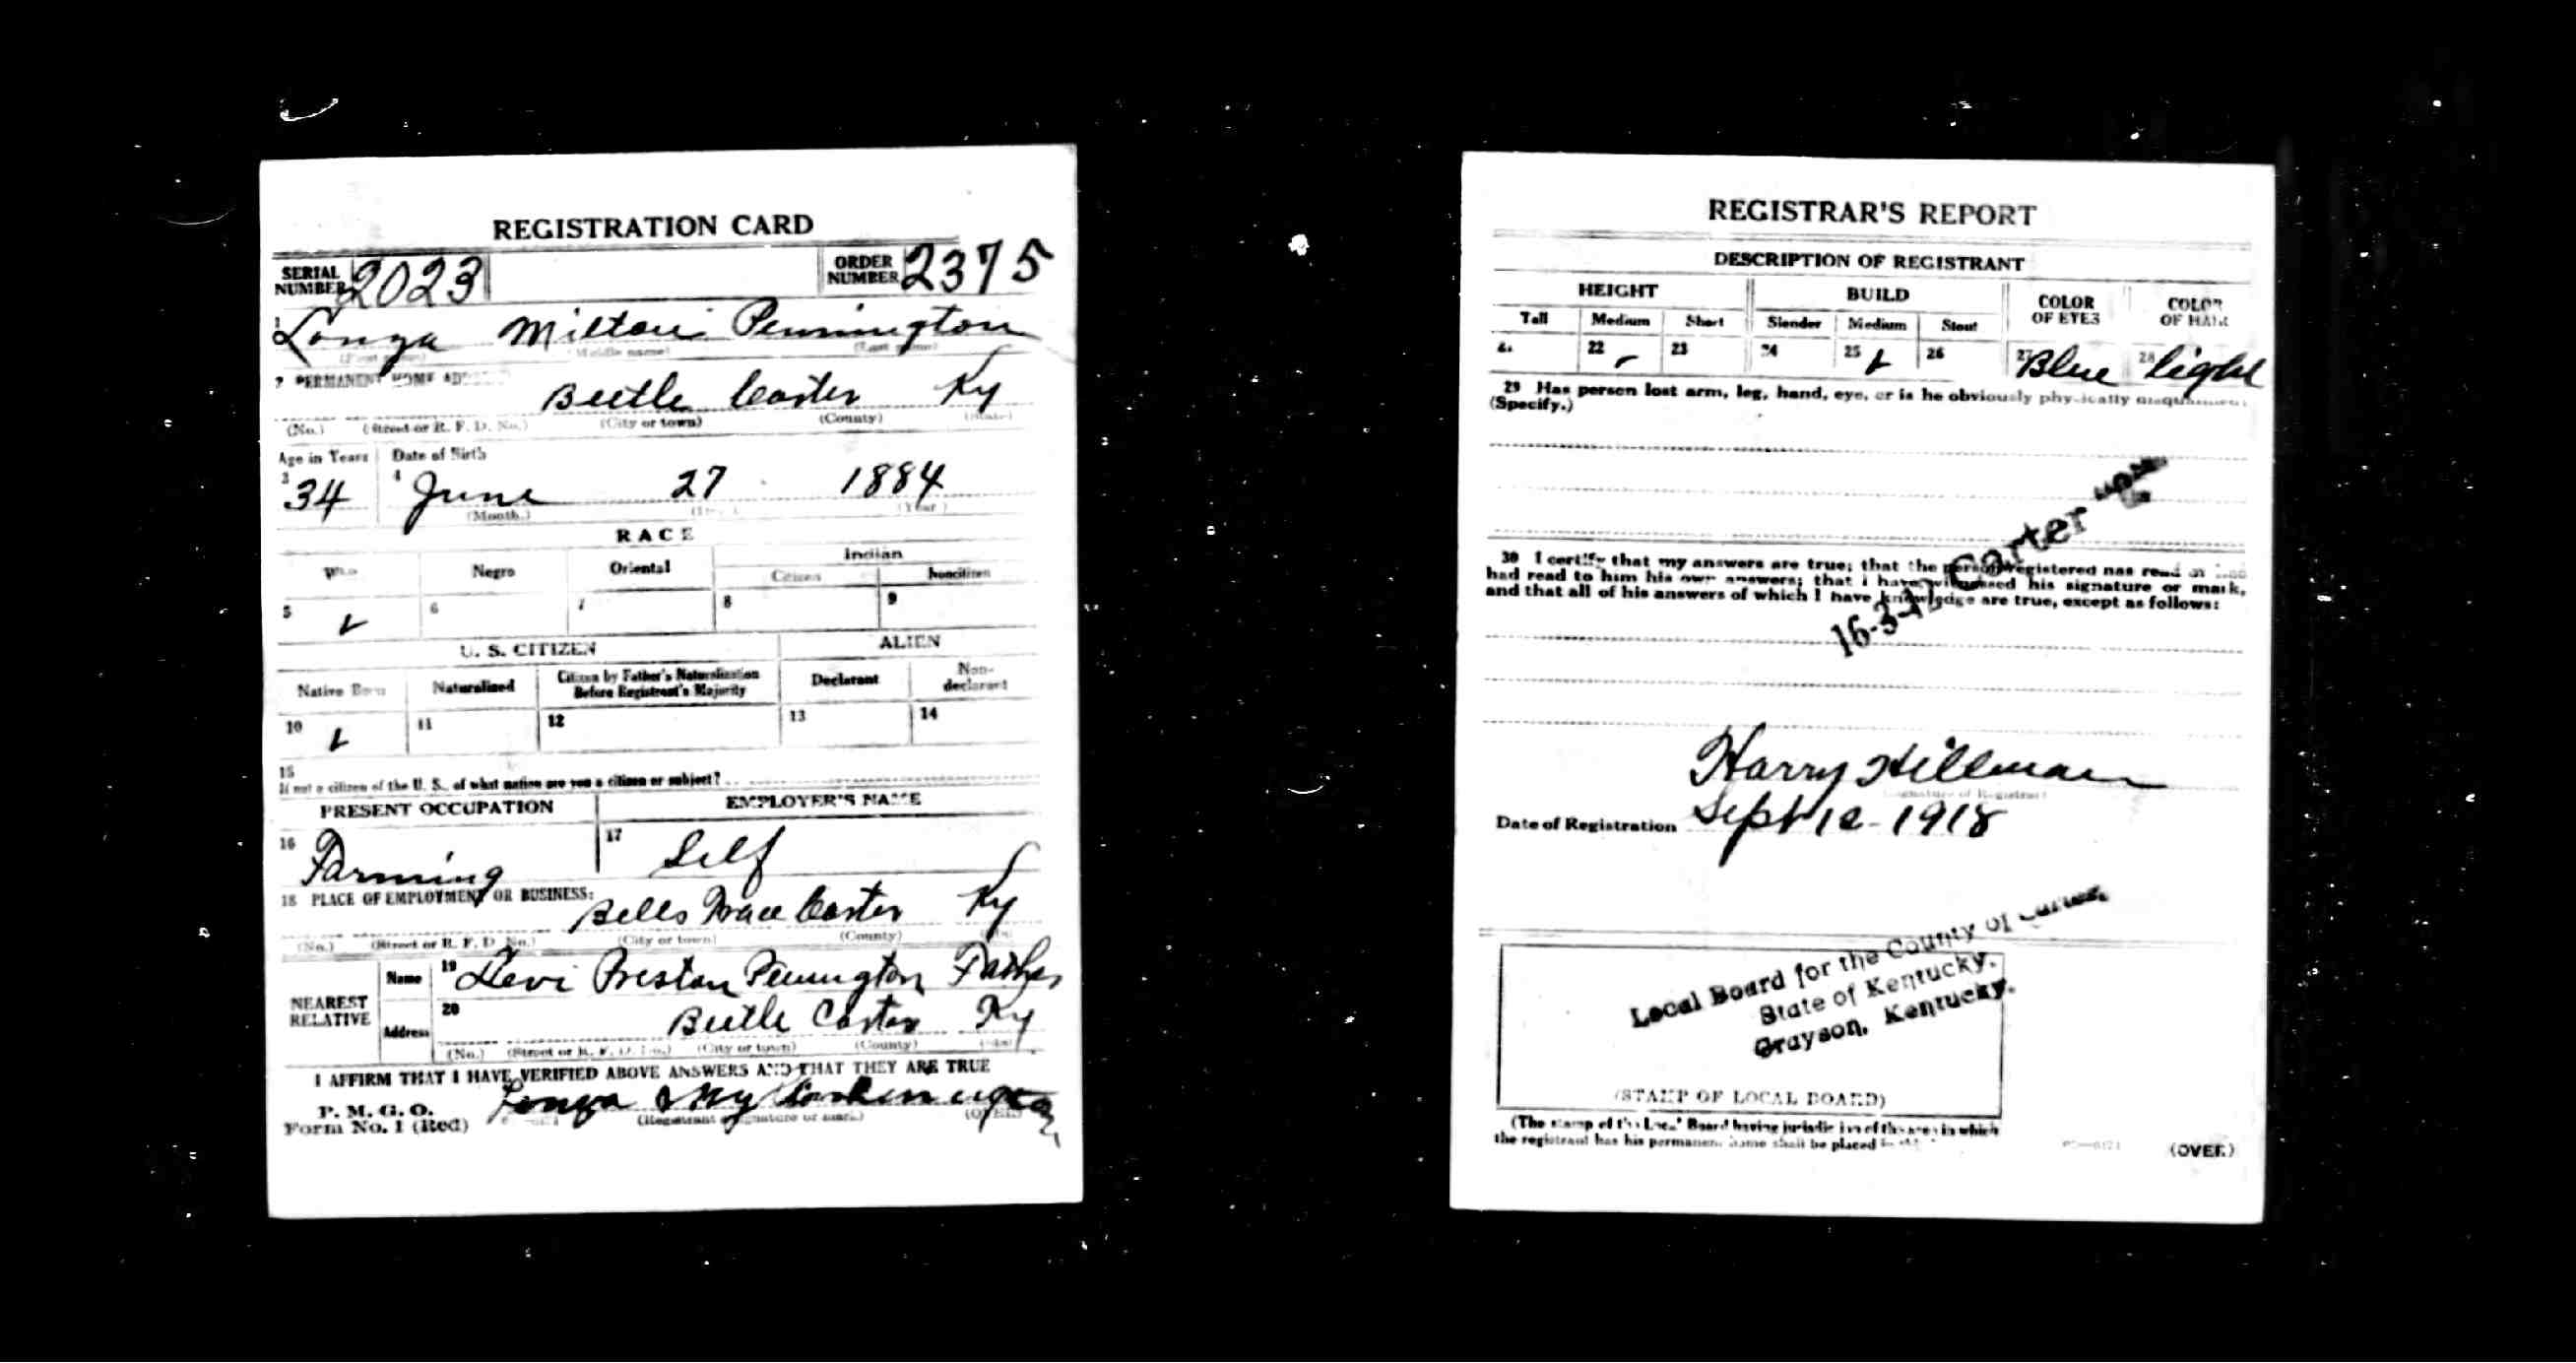 REGISTRATION CARD
SERIAL NUMBER 2023 ORDER NUMBER 2375
1 Lonza Milton Pennington
(First name) (Middle name) (Last name)
2 PERMANENT HOME ADDRESS
Beetle Carter Ky
(No.) (Street or R. F. D. No.) (City or town) (County) (State)
Age in Years Date of Birth
3 34 4 June 27 1884
(Month.) (Day.) (Year.)
RACE
White Negro Oriental Indian
Citizen Noncitizen
5 ✓ 6 7 8 9
U. S. CITIZEN ALIEN
Native Born Naturalized Citizen by Father's Naturalization Before Registrant's Majority Declarant Non-declarant
10 ✓ 11 12 13 14
15
If not a citizen of the U. S., of what nation are you a citizen or subject?
PRESENT OCCUPATION EMPLOYER'S NAME
16 Farming 17 Self
18 PLACE OF EMPLOYMENT OR BUSINESS:
Bells Trace Carter Ky
(No.) (Street or R. F. D. No.) (City or town) (County)
NEAREST RELATIVE
Name 19 Levi Preston Pennington Father
Address 20 Beetle Carter Ky
(No.) (Street or R. F. D. No.) (City or town) (County) (State)
I AFFIRM THAT I HAVE VERIFIED ABOVE ANSWERS AND THAT THEY ARE TRUE
P. M. G. O.
Form No. 1 (Red) Lonza
(Registrant's signature or mark.) (OVER)
REGISTRAR'S REPORT
DESCRIPTION OF REGISTRANT
HEIGHT BUILD COLOR OF EYES COLOR OF HAIR
Tall Medium Short Slender Medium Stout
21 22 ✓ 23 24 25 ✓ 26 27 Blue 28 light
29 Has person lost arm, leg, hand, eye, or is he obviously physically disqualified?
(Specify.)
16-3-17 Carter
30 I certify that my answers are true; that the person registered has read or has
had read to him his own answers; that I have witnessed his signature or mark,
and that all of his answers of which I have knowledge are true, except as follows:
Harry Hillman
(Signature of Registrar)
Date of Registration Sept 12-1918
Local Board for the County of Carter,
State of Kentucky.
Grayson, Kentucky.
(STAMP OF LOCAL BOARD)
(The stamp of the Local Board having jurisdiction of the area in which
the registrant has his permanent home shall be placed in
(OVER)